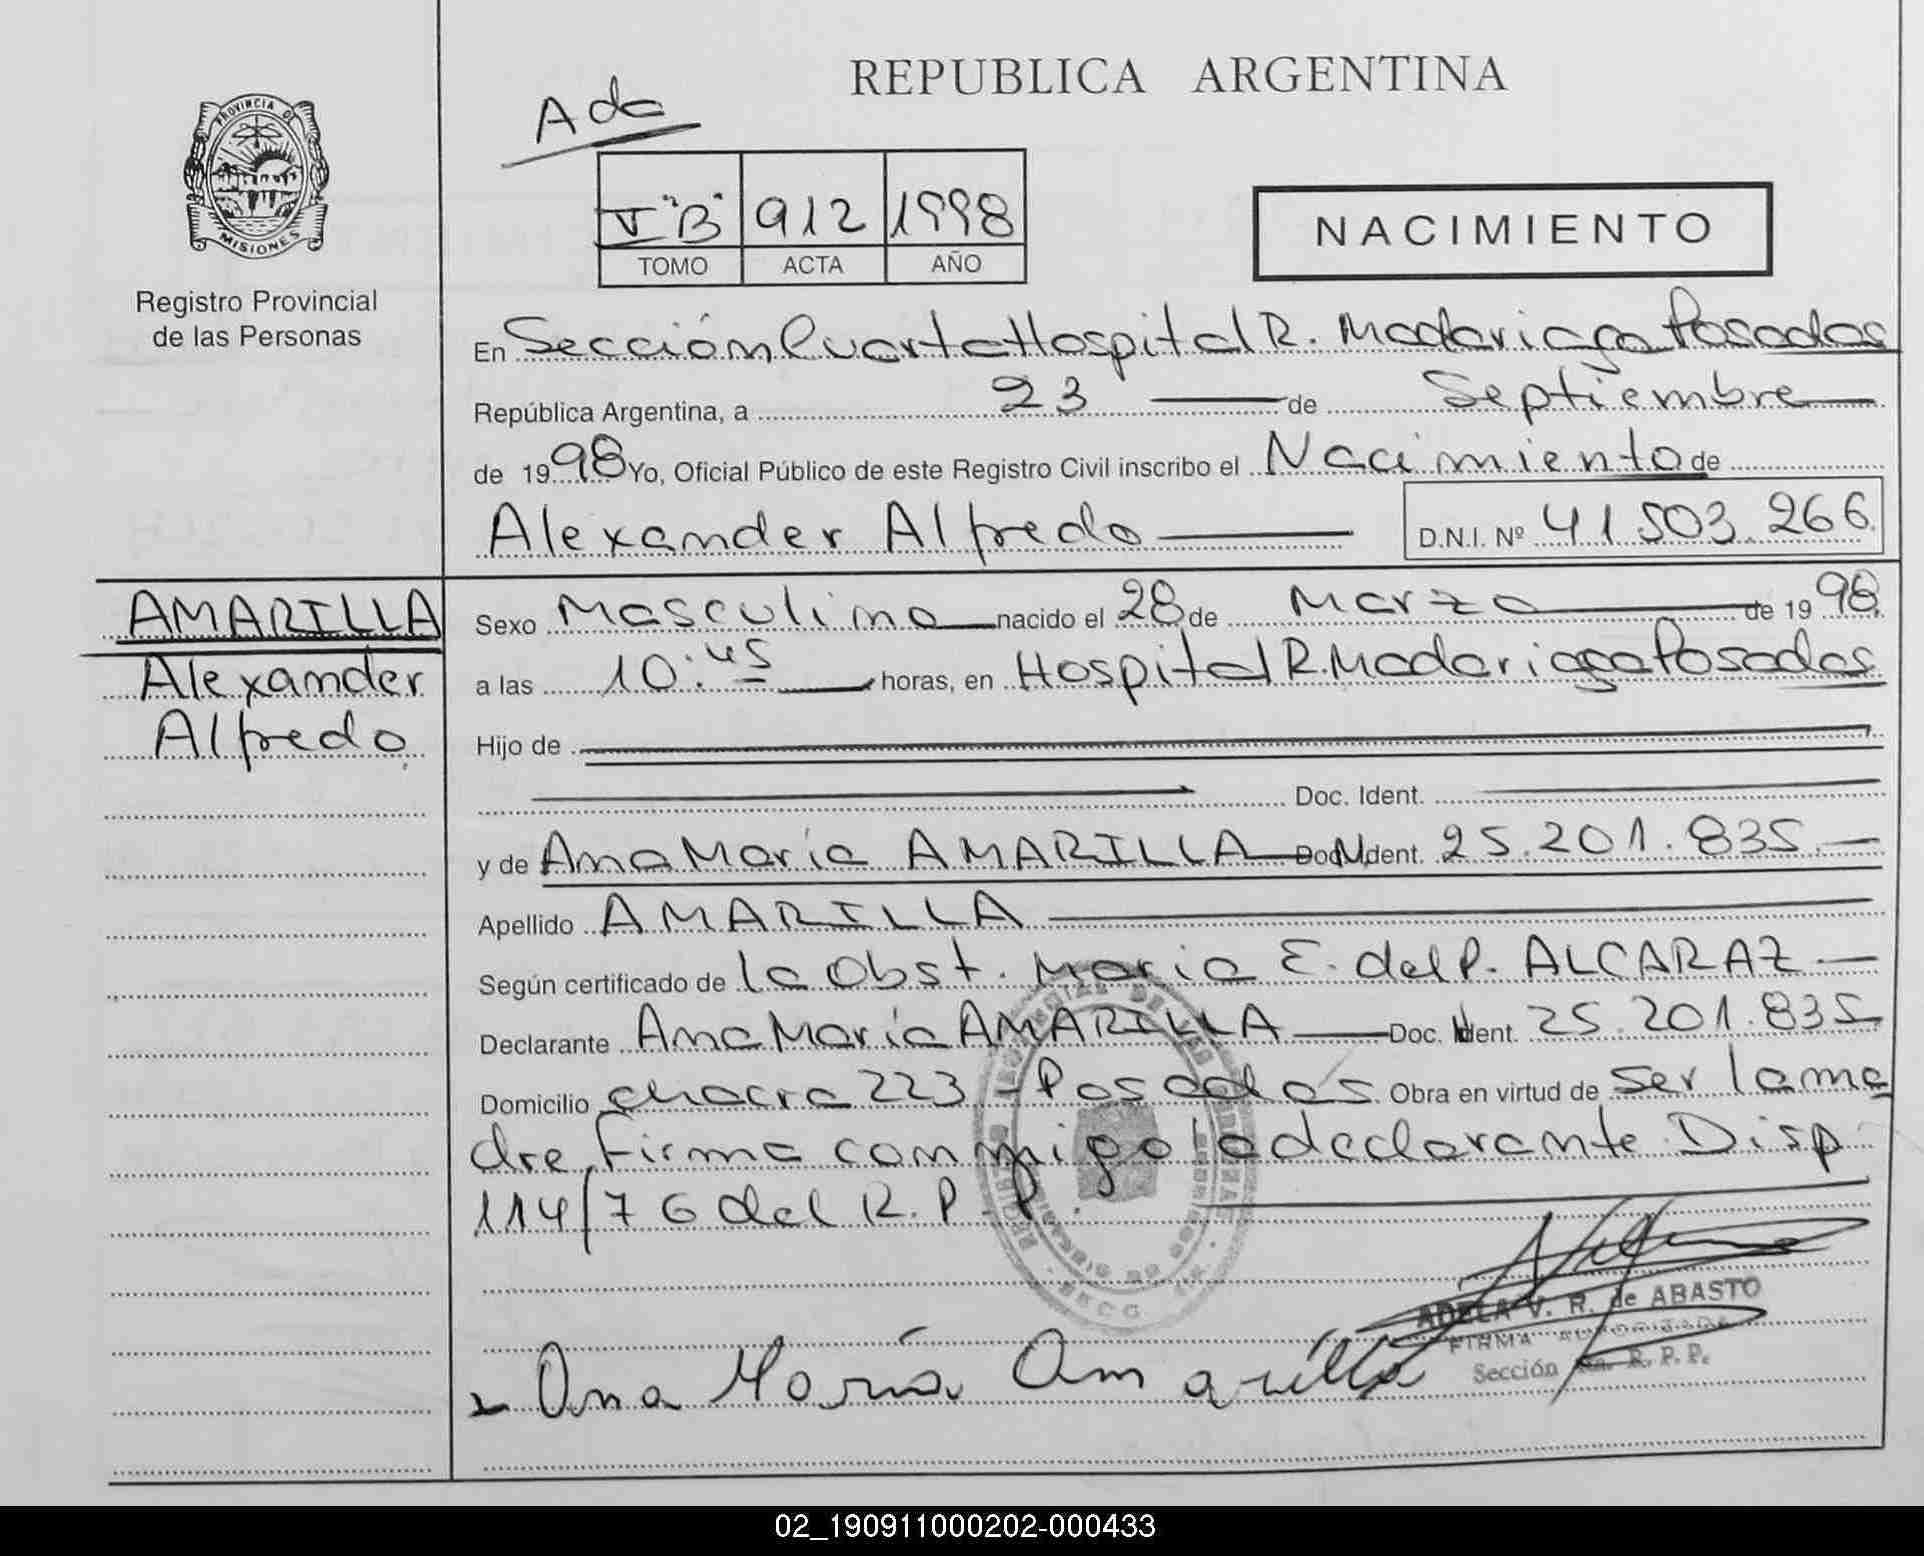 REPUBLICA ARGENTINA
Ada
PROVINCIA DE
MISIONES
V "B" 912 1998
TOMO ACTA AÑO
NACIMIENTO
Registro Provincial
de las Personas
En Sección Cuarta Hospital R. Madariaga Posadas
República Argentina, a 23 de Septiembre
de 1998 Yo, Oficial Público de este Registro Civil inscribo el Nacimiento de
Alexander Alfredo D.N.I. Nº 41.503.266
AMARILLA
Alexander
Alfredo
Sexo Masculino nacido el 28 de Marzo de 1998
a las 10:45 horas, en Hospital R. Madariaga Posadas
Hijo de
Doc. Ident.
y de Ana María AMARILLA Doc. Ident. 25.201.835
Apellido AMARILLA
Según certificado de la Obst. María E. del P. ALCARAZ
Declarante Ana María AMARILLA Doc. Ident. 25.201.835
Domicilio chacra 223 - Posadas Obra en virtud de ser la ma
dre, firma conmigo la declarante. Disp
114/76 del R.P.P.
ADELA V. R. de ABASTO
FIRMA AUTORIZADA
Sección R. P. P.
Ana María Amarilla
02_190911000202-000433